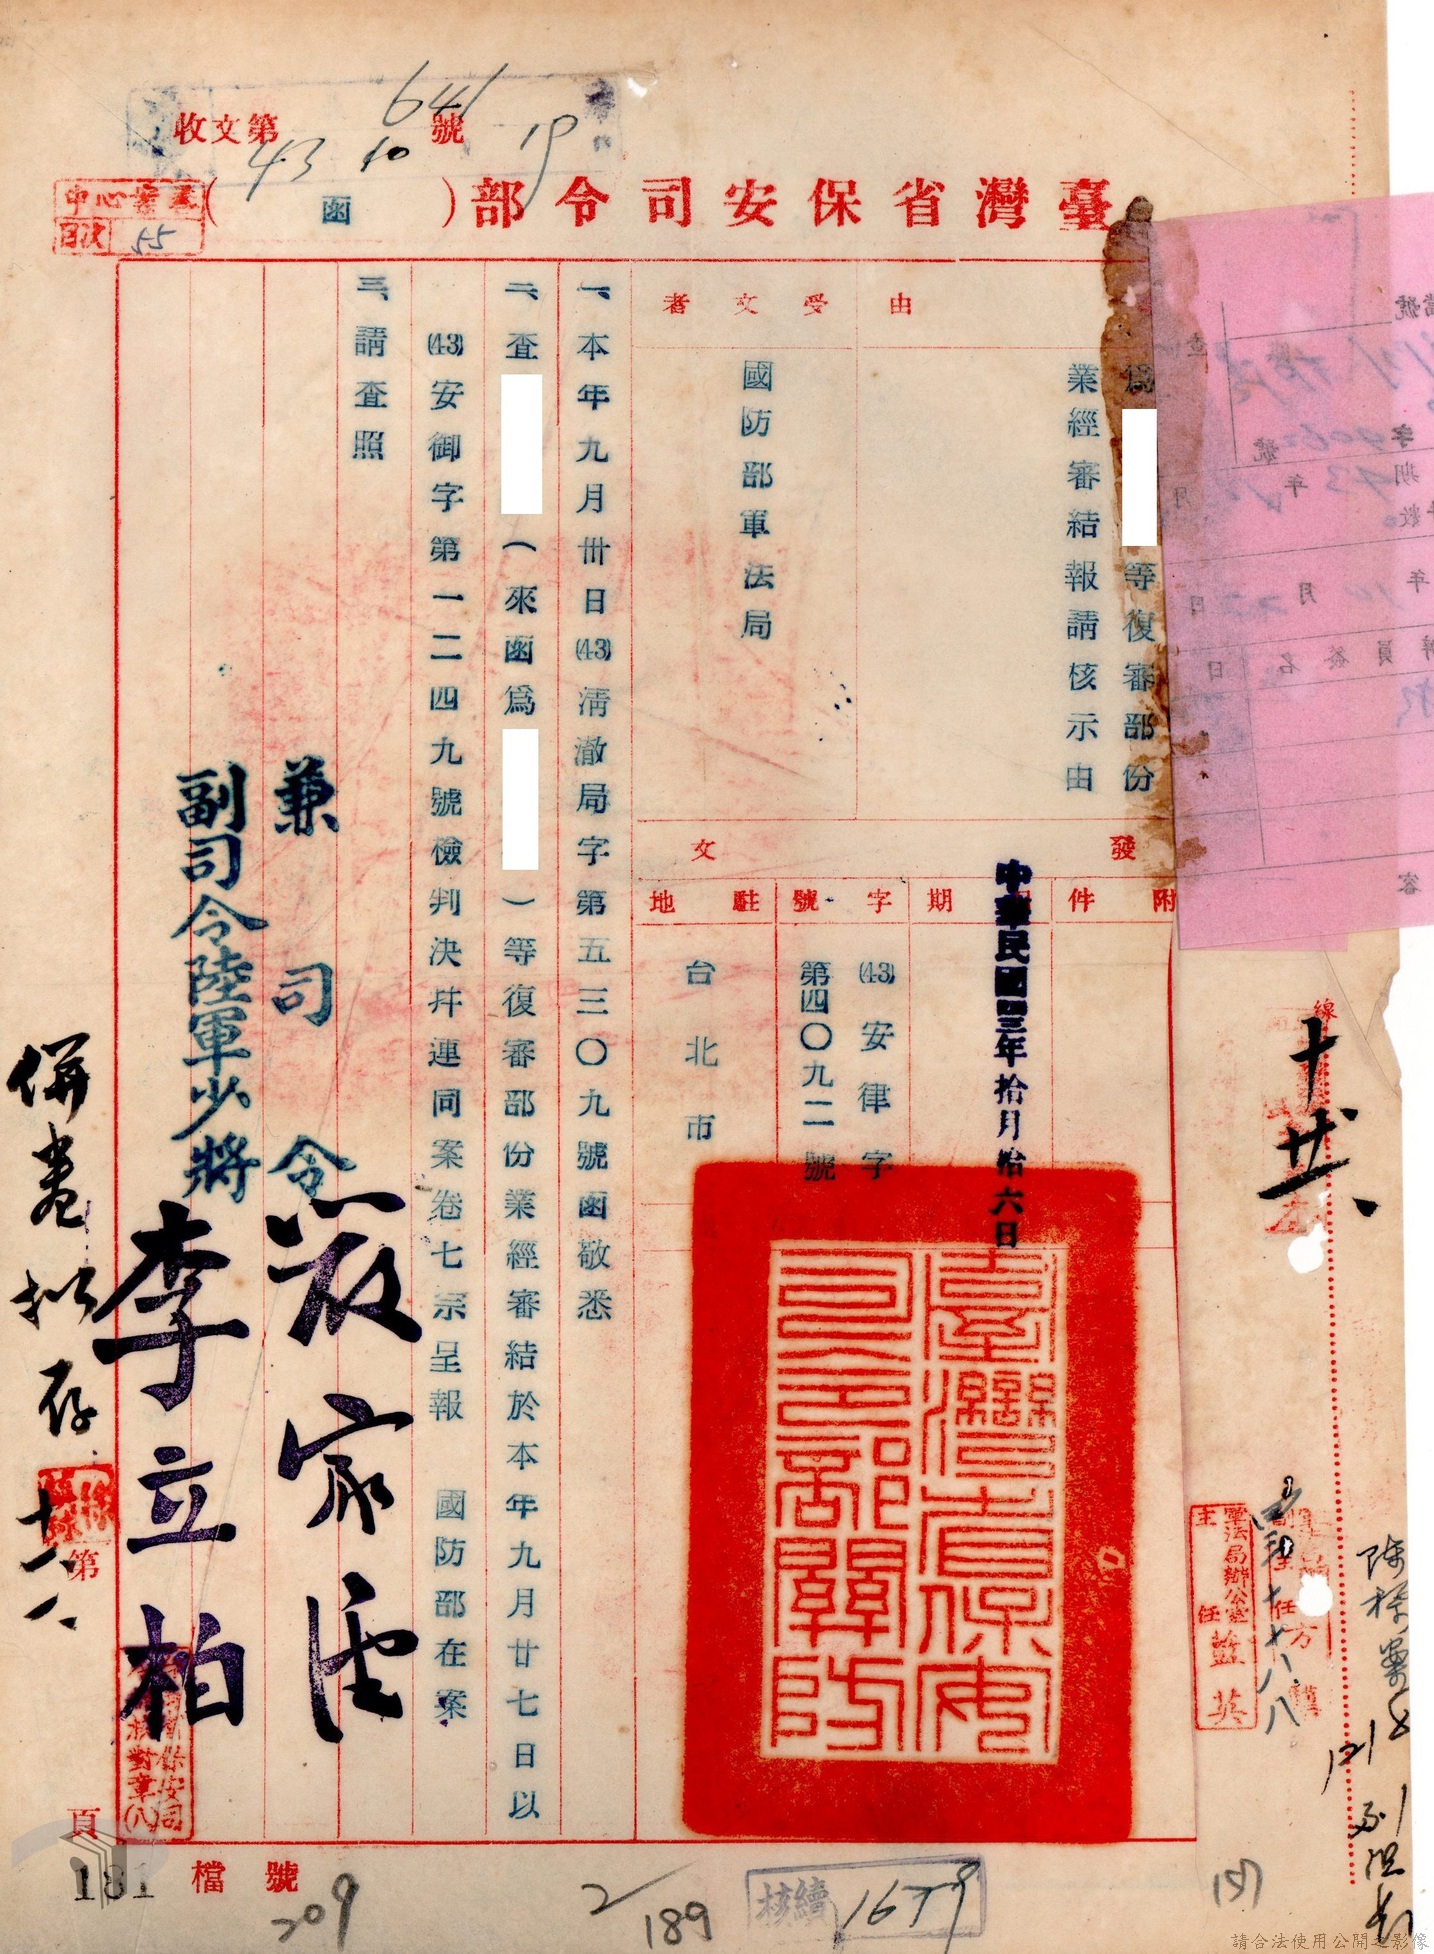 收文第641號
43 10 19
中心彙案
目次 55
臺灣省保安司令部(函)
由
爲
等復審部份
業經審結報請核示由
受文者
國防部軍法局
發文
附件
日期
中華民國四三年拾月拾六日
字號
(43)安律字
第四〇九二號
駐地
台北市
臺灣省保安司令部關防
一、本年九月卅日(43)清澈局字第五三〇九號函敬悉
二、查
(來函爲
)等復審部份業經審結於本年九月廿七日以
(43)安御字第一二四九號檢判決并連同案卷七宗呈報 國防部在案
三、請查照
兼司令 嚴家淦
副司令陸軍少將 李立柏
併卷擬存
十一八
第
頁
181
檔號
209
2
189
核續
1679
187
線
十廿、
軍法局辦公室
主任藍英
副主任方
請合法使用公開之影像